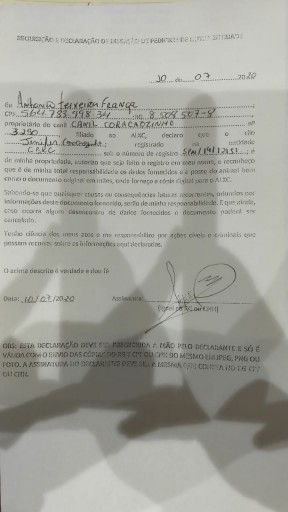 REQUISIÇÃO E DECLARAÇÃO DE ISENÇÃO DO PEDIGREE DE
10 de 07 /2020
Eu Antonio Teixeira França
CPF 564.783.998.34 RG 8.508.507-8
proprietário do canil CANIL CORACAOZINHO nº
3.290 filiado ao ALKC, declaro que o cão
registrado na entidade
CBKC sob o número de registro é
de minha propriedade, autorizo que seja feito o registro em meu nome, e reconheço
que é de minha total responsabilidade os dados fornecidos e a posse do animal bem
como o documento original em mãos, onde forneço a cópia digital para a ALKC.
Sabendo-se que quaisquer causas ou consequências futuras decorrentes, advindas das
informações deste documento fornecido, serão de minha responsabilidade. E que ainda,
caso ocorra algum desacordo de dados fornecidos o documento poderá ser
cancelado.
Tenho ciência dos meus atos e me responsabilizo por ações cíveis e criminais que
possam ocorrer sobre as informações aqui declaradas.
O acima descrito é verdade e dou fé
Data: 10/07/2020 Assinatura:
(igual ao RG ou CNH)
OBS: ESTA DECLARAÇÃO DEVE SER PREENCHIDA A MÃO PELO DECLARANTE E SÓ É
VÁLIDA COM O ENVIO DAS CÓPIAS DO RG E CPF OU CNH DO MESMO EM JPEG, PNG OU
FOTO. A ASSINATURA DO DECLARANTE DEVE SER A MESMA QUE CONSTA NO RG CPF
OU CNH.